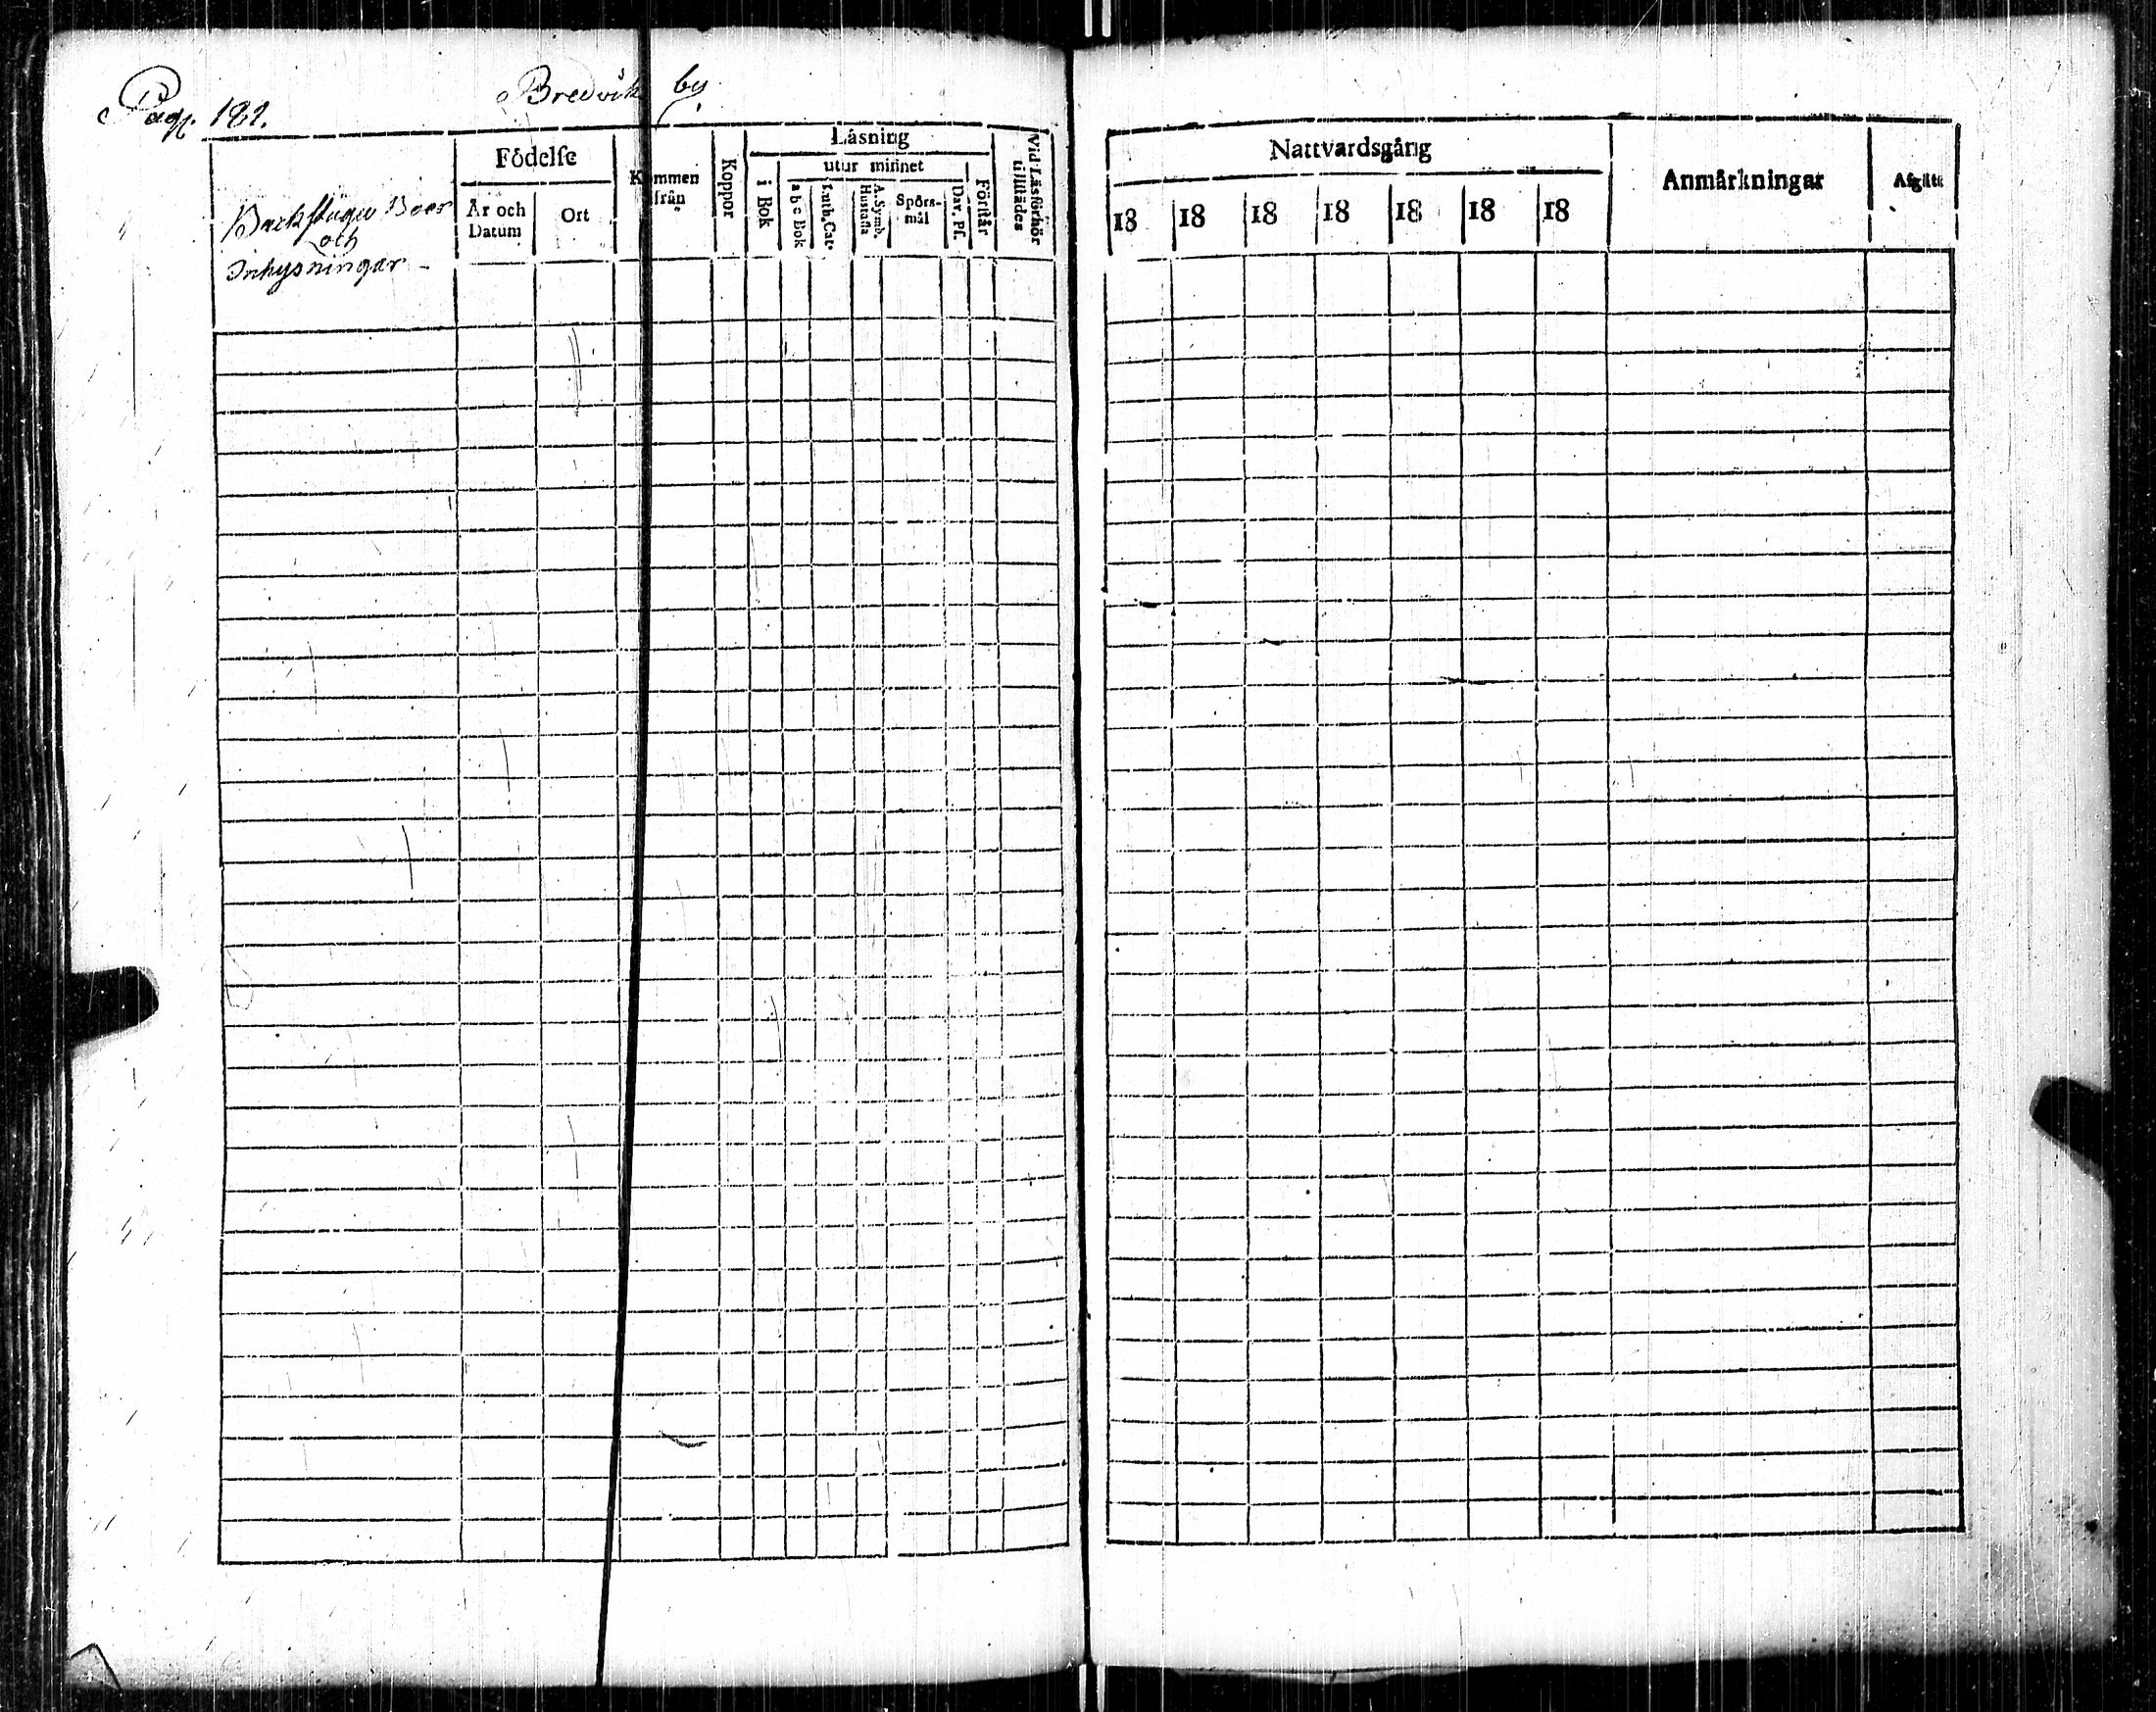 Pag. 181.
Bredvik by
Backstugu Boer
och
Inhysningar
Födelse
År och
Datum
Ort
Kommen
ifrån
Koppor
Läsning
i Bok
utur minnet
a b c Bok
Luth. Cat.
A. Symb.
Hustafla
Spörs-
mål
Dav. Ps.
Förstår
Vid Läsförhör
tillstädes
Nattvardsgång
18 18 18 18 18 18 18
Anmärkningar